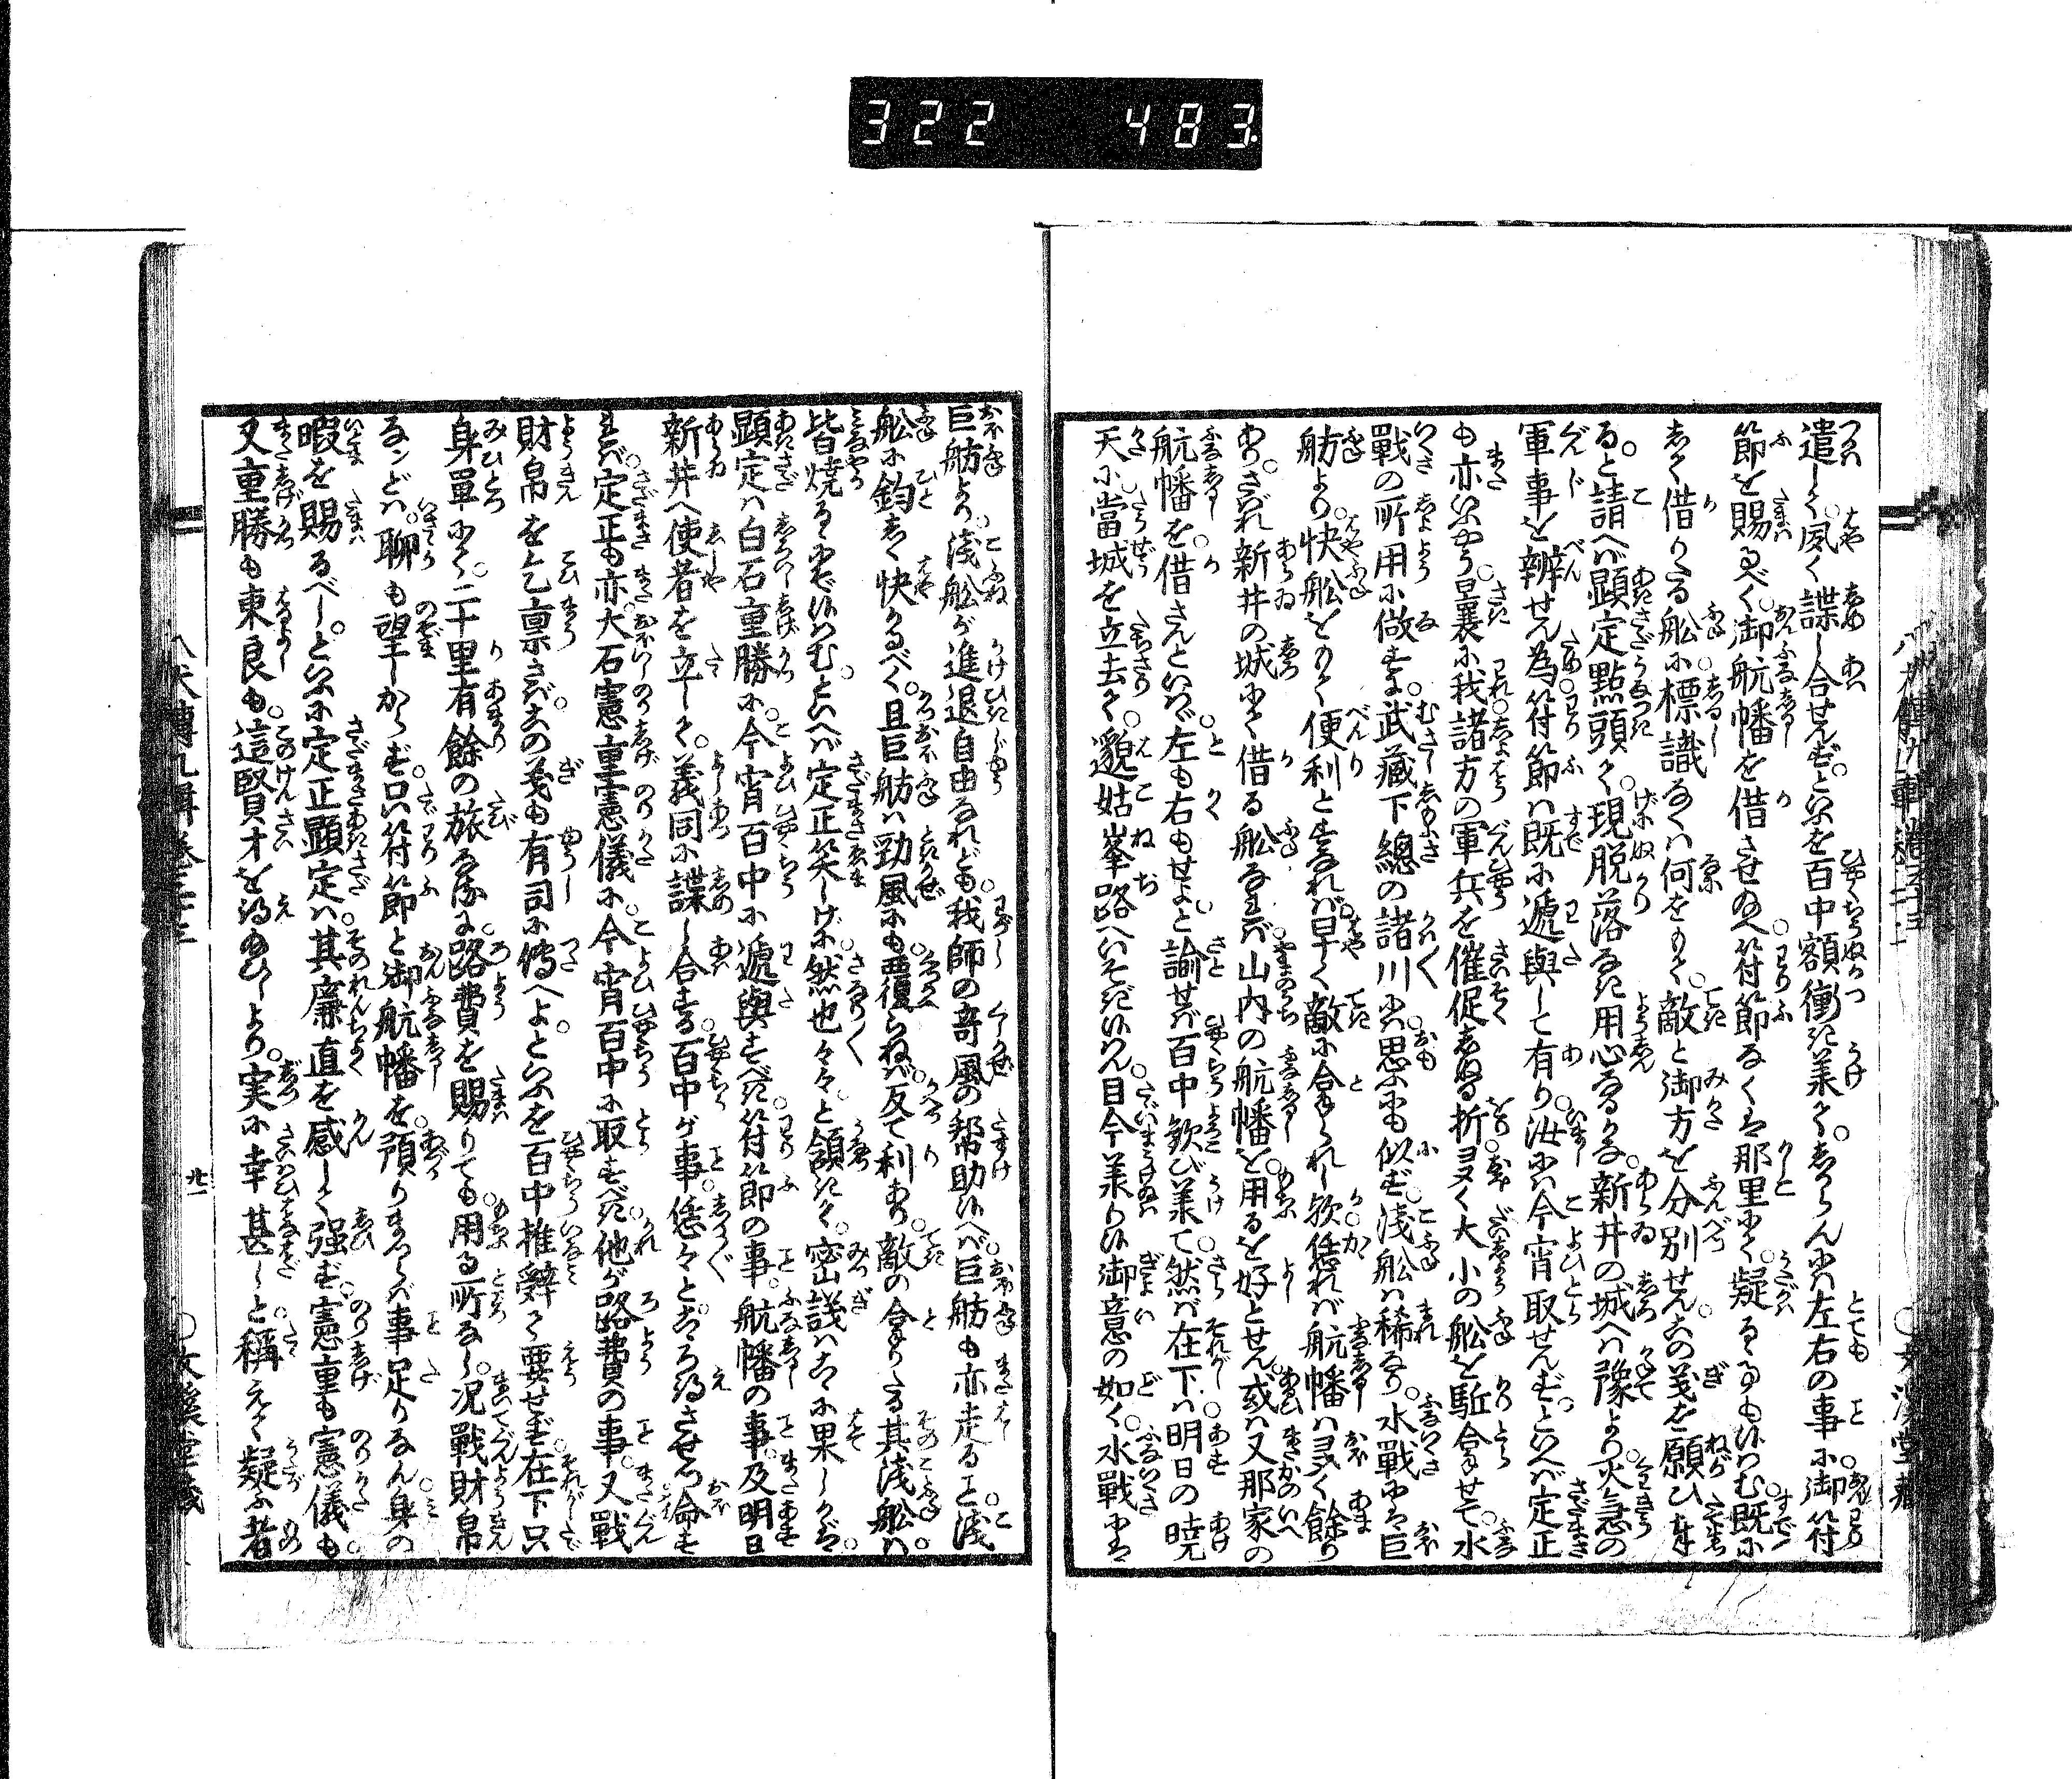 322 483
遣して夙く諜し合せんず。といふを百中額衝き兼て。しからんには左右の事に御符
節を賜るべく。御航幡を借させ給へ。符節なくは那里にて。疑るゝ事も侍はむ。既に
して借りたる舩に標識なくは何をもて。敵と御方を分別せん。この義を願ひ奉
る。と請へば顕定點頭て。現脱落なき用心なりかし。新井の城へは豫より。火急の
軍事を辨せん為。符節は既に遞與して有り。汝には今宵取せんず。といへば定正
も亦いふやう。曩裏に我諸方の軍兵を催促しぬる折。多く大小の舩を駈合せて。水
戰の所用に做すに。武藏下總の諸川には。思ふにも似ず。淺舩は稀なり。水戰には巨
舫より。快舩をもて便利とすなれば。早く敵に合せられし欤。恁れば航幡は多く餘り
あり。されば新井の城にて借る舩ならば。山内の航幡を。用るを好とせん。或は又那家の
航幡を。借さんといはゞ。左も右もせよ。と諭せば百中歓び兼て。然ば在下は明日の暁
天に。當城を立去て。邈姑峯路へいそぎ侍はん。目今兼り侍御意の如く。水戰には
巨舫より。淺舩が進退自由なれども。我師の奇風の幇助侍へば。巨舫も亦走ること。淺
舩に鈞しく快かるべく。且巨舫は勁風にも。覆らねば反て利あり。敵の合せたる其淺舩は。
皆焼るゝにぞ侍はむ。といへば定正笑しげに。然也々々。と領きて。密議はこゝに果しかば。
顕定は白石重勝に。今宵百中に遞與すべき。符節の事。航幡の事。及明日
新井へ使者を立して。義同に諜し合する。百中が事。恁々とこゝろ得させて。命ず
れば。定正も亦。大石憲重憲儀に。今宵百中に取すべき。他が路費の事。又戰
財帛を乞稟さば。この義も有司に傳へよ。といふを百中推辭て要せず。在下只
身單にて。二十里有餘の旅なるに。路費を賜りても。用る所なし。况戰財帛
なンどは。聊も望しからず。只符節と御航幡を。預りまつらば事足りなん。身の
暇を賜るべし。といふに定正顕定は。其廉直を感して強ず。憲重も憲儀も。
又重勝も東良も。這賢才を得給ひしより。実に幸甚し。と稱えて疑ふ者
八犬傳九輯卷三十三
廿一
○文溪堂藏